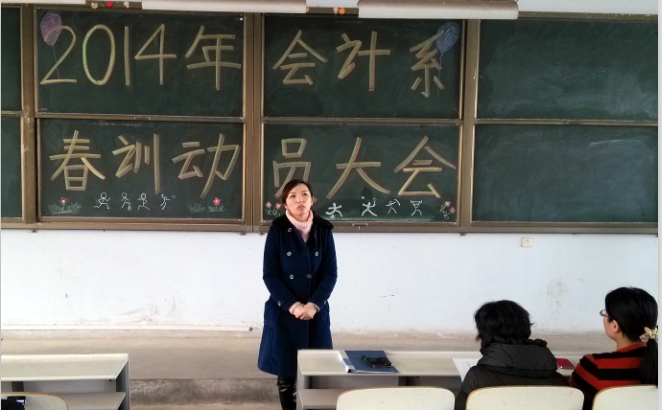 2014年会计系
春训动员大会